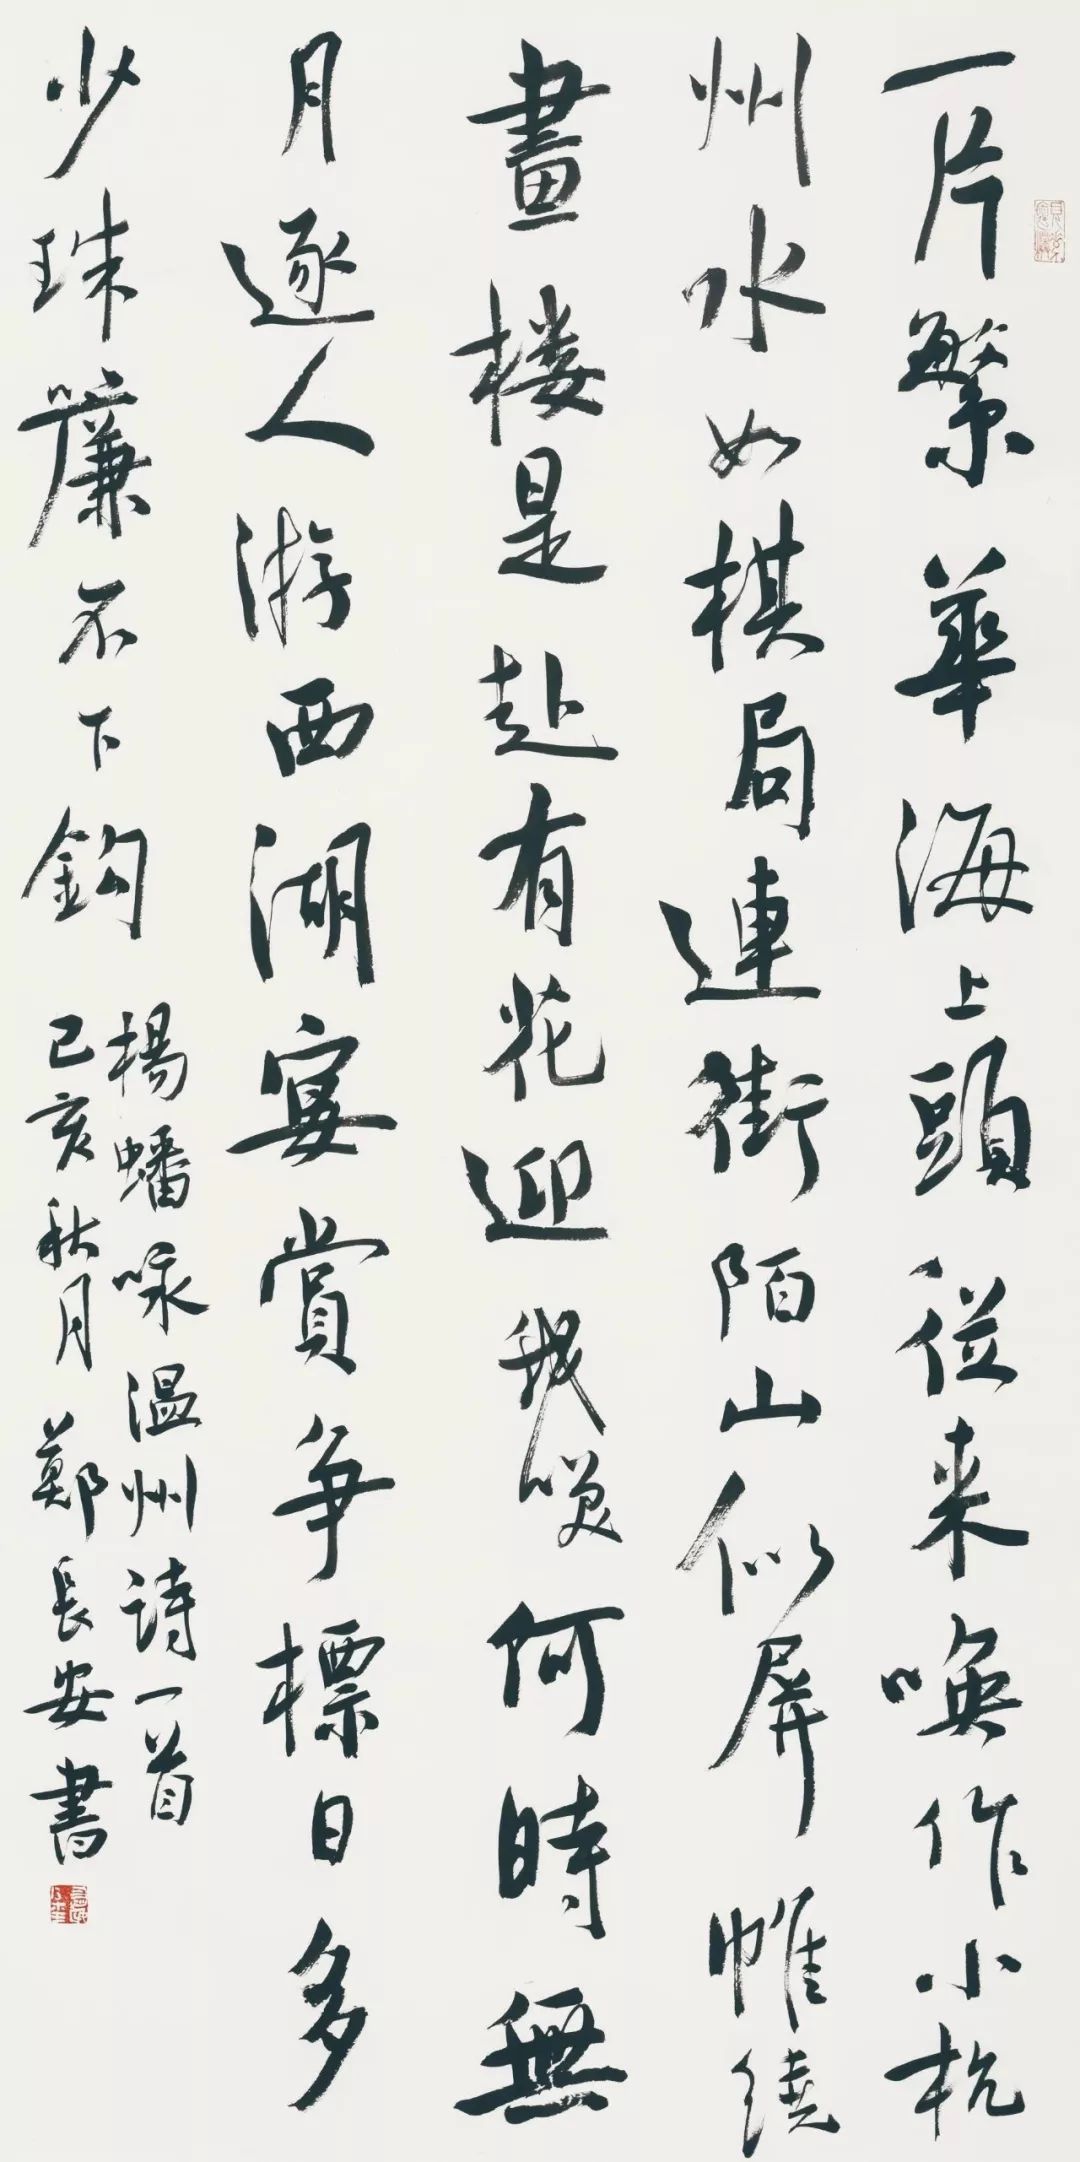 一片繁華海上頭従来喚作小杭
州水如棋局連街陌山似屏帷繞
畫楼是赴有花迎我咲何時無
月逐人游西湖宴賞争標日多
少珠簾不下鈎
楊蟠咏温州诗一首
己亥秋月鄭長安書